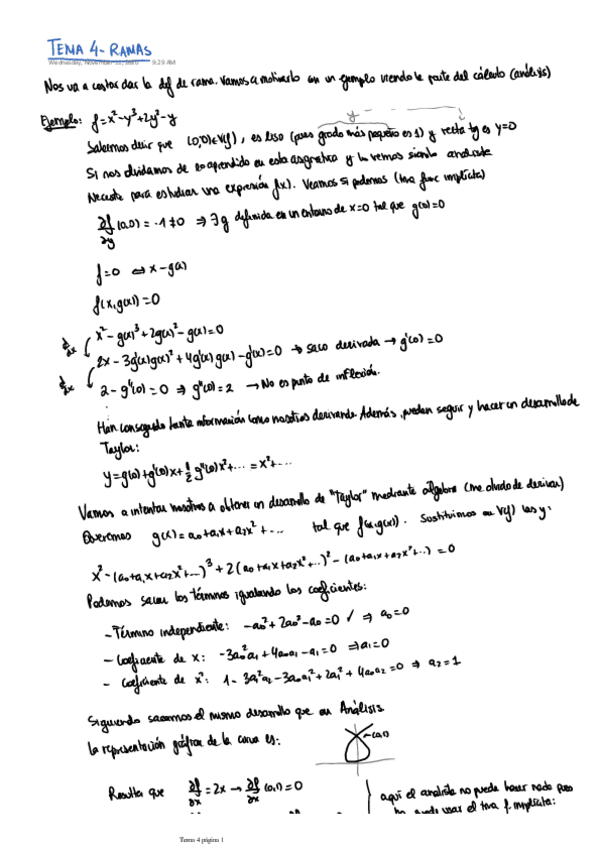 TEMA 4- RAMAS
Wednesday, November 11, 2020 9:29 AM
Nos va a costar dar la def de rama. Vamos a motivarlo con un ejemplo viendo la parte del cálculo (análisis)
Ejemplo: f=x²-y³+2y²-y
y
Sabemos decir que (0,0)∈V(f), es liso (pues grado más pequeño es 1) y recta tg es y=0
Si nos olvidamos de lo aprendido en esta asignatura y la vemos siendo analista
Necesito para estudiar una expresión f(x). Veamos si podemos (tma func implícita)
∂f/∂y (0,0) = -1 ≠0 ⇒ ∃ g definida en un entorno de x=0 tal que g(0)=0
f=0 ⇔ x-g(x)
f(x,g(x))=0
d/dx ( x²-g(x)³+2g(x)²-g(x)=0
d/dx ( 2x-3g'(x)g(x)²+4g'(x)g(x)-g'(x)=0 → saco derivada → g'(0)=0
2-g''(0)=0 ⇒ g''(0)=2 → No es punto de inflexión.
Han conseguido tanta información como nosotros derivando. Además, pueden seguir y hacer un desarrollo de
Taylor:
y=g(0)+g'(0)x+½g''(0)x²+... = x²+...
Vamos a intentar nosotros a obtener un desarrollo de "Taylor" mediante álgebra (me olvido de derivar)
Queremos g(x)=a₀+a₁x+a₂x²+... tal que f(x,g(x)). Sustituimos en V(f) las y:
x²-(a₀+a₁x+a₂x²+...)³+2(a₀+a₁x+a₂x²+...)²-(a₀+a₁x+a₂x²+...)=0
Podemos sacar los términos igualando los coeficientes:
- Término independiente: -a₀³+2a₀²-a₀=0 ✓ ⇒ a₀=0
- Coeficiente de x: -3a₀²a₁+4a₀a₁-a₁=0 ⇒ a₁=0
- Coeficiente de x²: 1-3a₀²a₂-3a₀a₁²+2a₁²+4a₀a₂=0 ⇒ a₂=1
Siguiendo sacamos el mismo desarrollo que en Análisis
la representación gráfica de la curva es: (0,1)
Resulta que ∂f/∂x = 2x → ∂f/∂x (0,1)=0 aquí el analista no puede hacer nada pues
no puede usar el tma f. implícita:
Tema 4 página 1